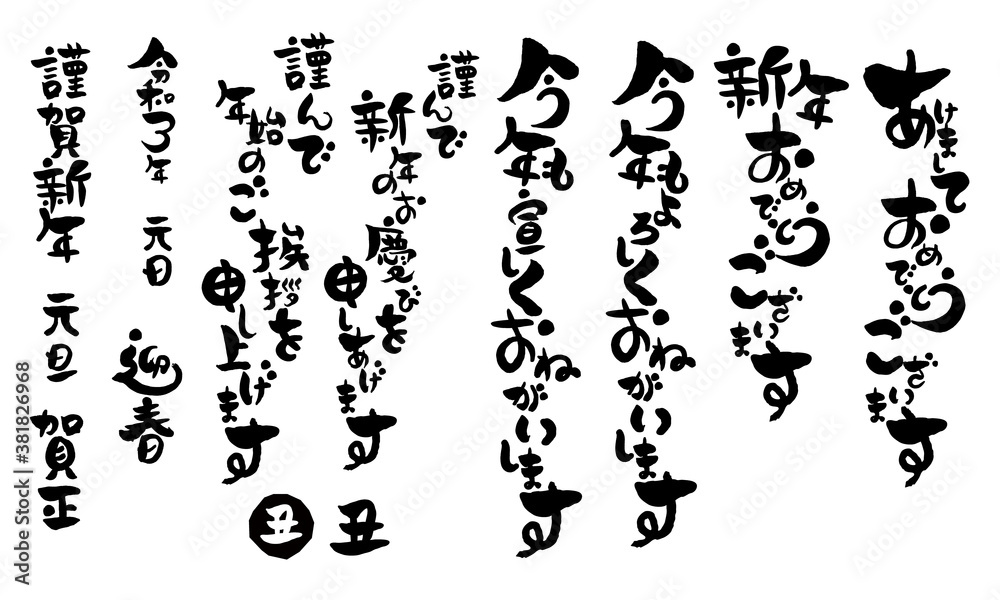 あけましておめでとうございます
新年おめでとうございます
今年もよろしくおねがいします
今年も宣しくおねがいします
謹んで
新年のお慶びを
申しあげます
謹んで
年始のご挨拶を
申し上げます
丑
丑
令和3年 元日
迎春
謹賀新年 元旦
賀正
Adobe Stock | #381826968
Adobe Stock